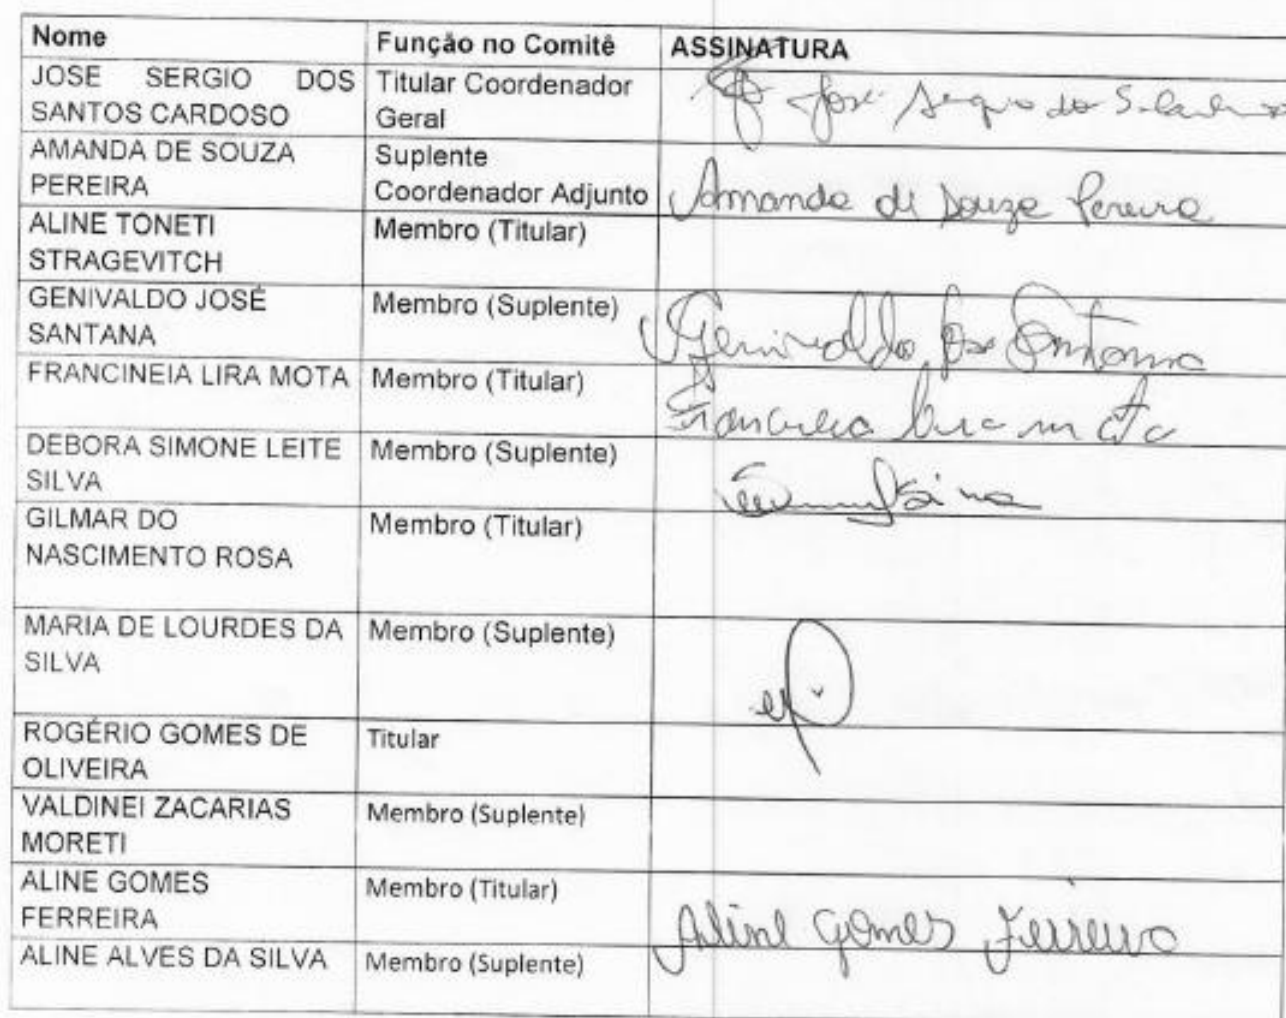 Nome Função no Comitê ASSINATURA
JOSE SERGIO DOS SANTOS CARDOSO
Titular Coordenador Geral
José Sergio dos S.
AMANDA DE SOUZA PEREIRA
Suplente Coordenador Adjunto
Amanda de Souza Pereira
ALINE TONETI STRAGEVITCH
Membro (Titular)
GENIVALDO JOSÉ SANTANA
Membro (Suplente)
Genivaldo José Santana
FRANCINEIA LIRA MOTA
Membro (Titular)
Francineia Lira Mota
DEBORA SIMONE LEITE SILVA
Membro (Suplente)
GILMAR DO NASCIMENTO ROSA
Membro (Titular)
MARIA DE LOURDES DA SILVA
Membro (Suplente)
ROGÉRIO GOMES DE OLIVEIRA
Titular
VALDINEI ZACARIAS MORETI
Membro (Suplente)
ALINE GOMES FERREIRA
Membro (Titular)
Aline Gomes Ferreira
ALINE ALVES DA SILVA
Membro (Suplente)